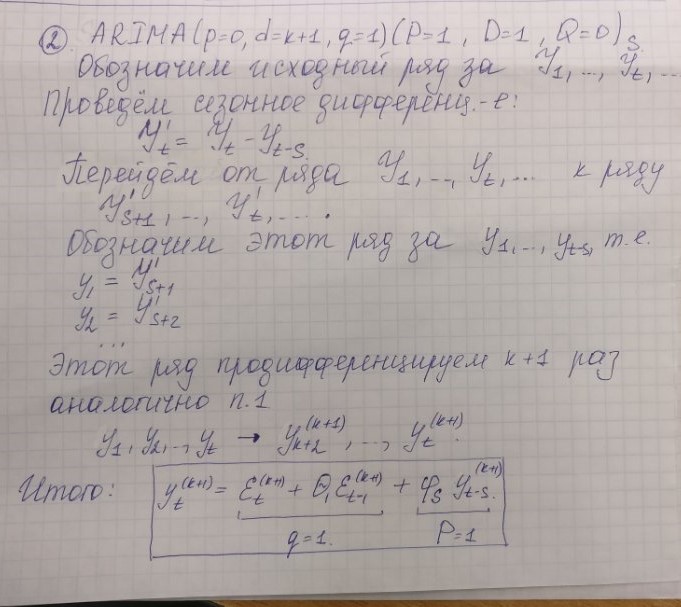 ② ARIMA (p=0, d=k+1, q=1)(P=1, D=1, Q=0)s.
Обозначим исходный ряд за Y₁, ..., Yₜ, ...
Проведём сезонное дифференц.-е:
Y'ₜ = Yₜ - Yₜ₋ₛ.
Перейдём от ряда Y₁, ..., Yₜ, ... к ряду
Y'ₛ₊₁, ..., Y'ₜ, ... .
Обозначим этот ряд за y₁, ..., yₜ₋ₛ, т.е.
y₁ = Y'ₛ₊₁
y₂ = Y'ₛ₊₂
...
Этот ряд продифференцируем k+1 раз
аналогично п.1
y₁, y₂, .., yₜ → yₖ₊₂⁽ᵏ⁺¹⁾, ..., yₜ⁽ᵏ⁺¹⁾.
Итого: yₜ⁽ᵏ⁺¹⁾ = εₜ⁽ᵏ⁺¹⁾ + θ₁εₜ₋₁⁽ᵏ⁺¹⁾ + φₛ yₜ₋ₛ⁽ᵏ⁺¹⁾.
q=1. P=1